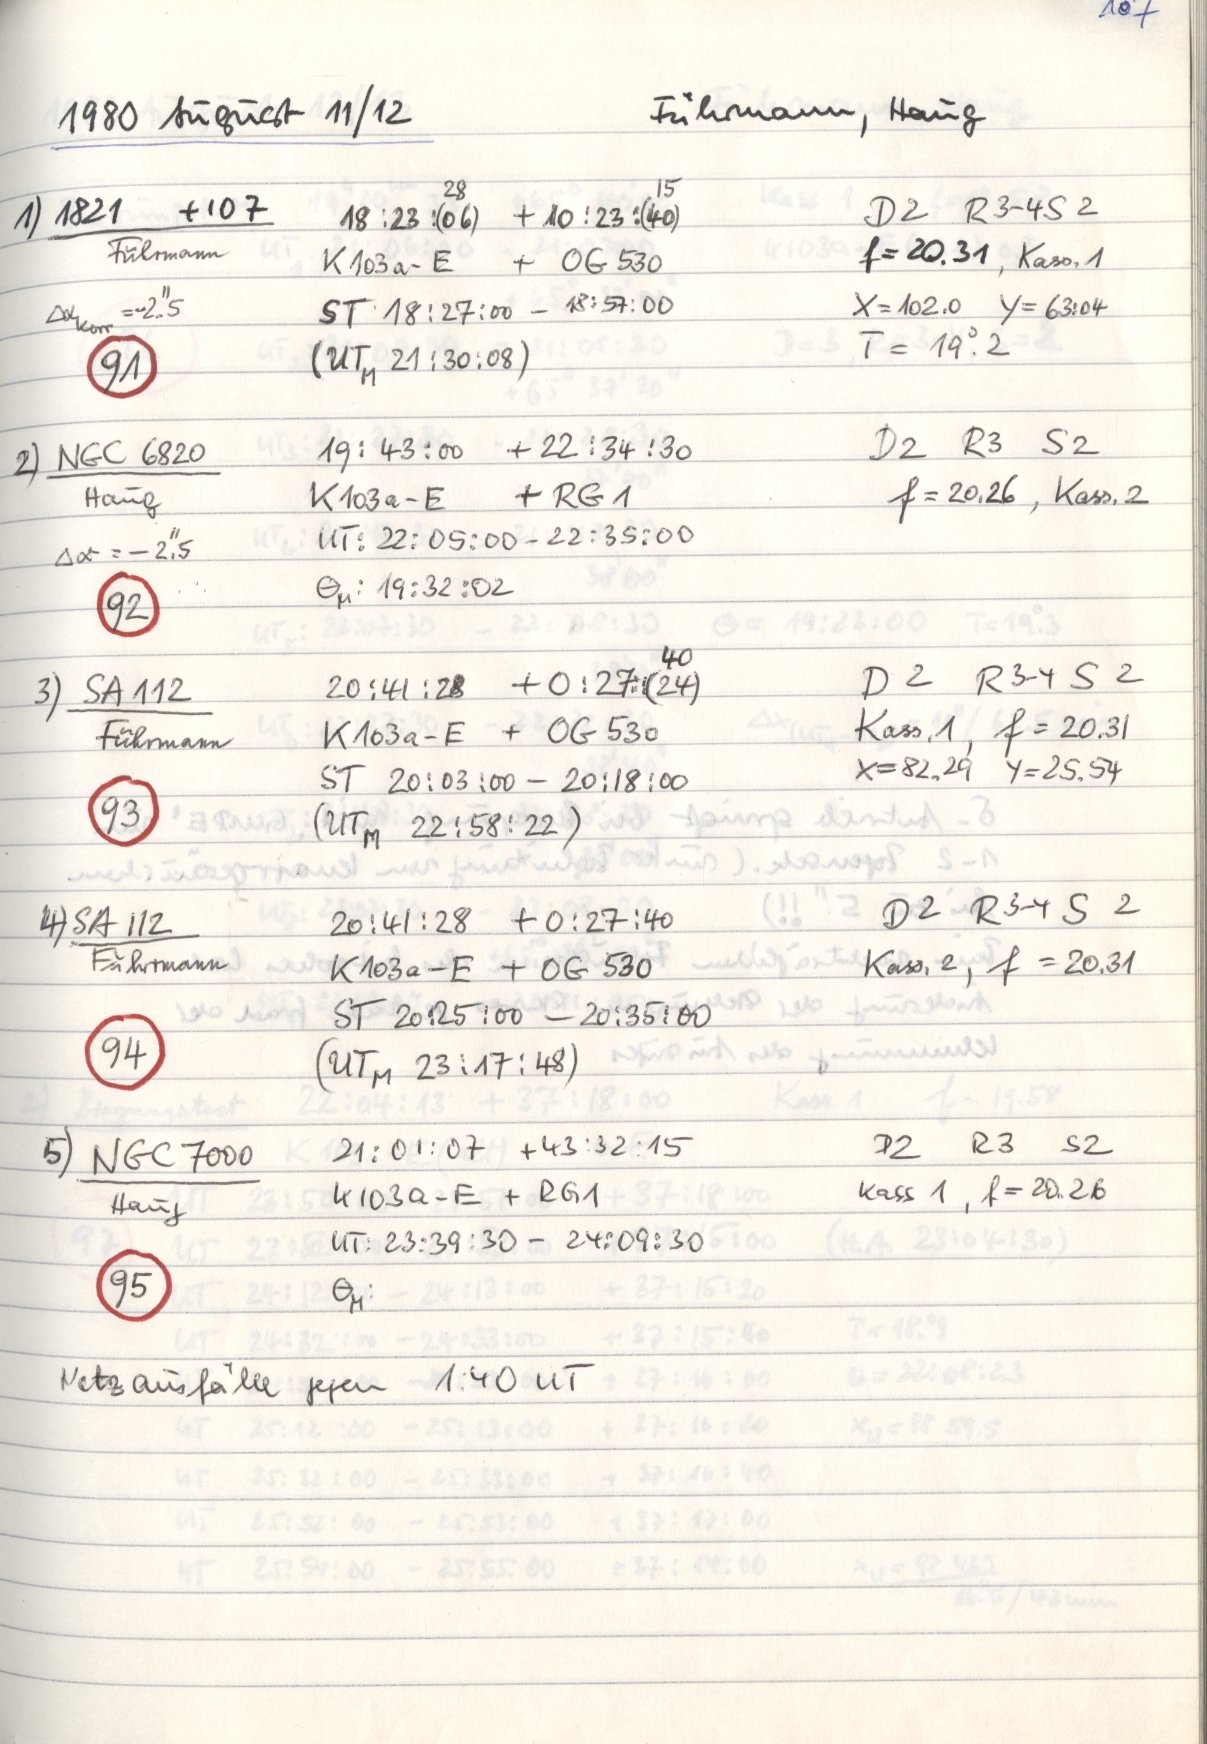 107
1980 August 11/12 Führmann, Haug
28 15
1) 1821 +107 18:23:(06) +10:23:(40) D2 R3-4S2
Führmann K103a-E + OG530 f=20.31, Kass.1
Δα Korr =-2".5 ST 18:27:00 - 18:57:00 X=102.0 Y=63.04
91 (UTM 21:30:08) T=19°.2
2) NGC 6820 19:43:00 +22:34:30 D2 R3 S2
Haug K103a-E + RG1 f=20.26, Kass.2
Δα=-2".5 UT: 22:05:00-22:35:00
92 ΘM: 19:32:02
40
3) SA112 20:41:28 +0:27:(24) D2 R3-4 S2
Führmann K103a-E + OG530 Kass.1, f=20.31
ST 20:03:00 - 20:18:00 X=82.29 Y=25.54
93 (UTM 22:58:22)
4) SA112 20:41:28 +0:27:40 D2 R3-4 S2
Führmann K103a-E + OG530 Kass.2, f=20.31
ST 20:25:00 - 20:35:00
94 (UTM 23:17:48)
5) NGC7000 21:01:07 +43:32:15 D2 R3 S2
Haug K103a-E + RG1 Kass 1, f=20.26
UT: 23:39:30 - 24:09:30
95 ΘM:
Netzausfälle gegen 1:40 UT